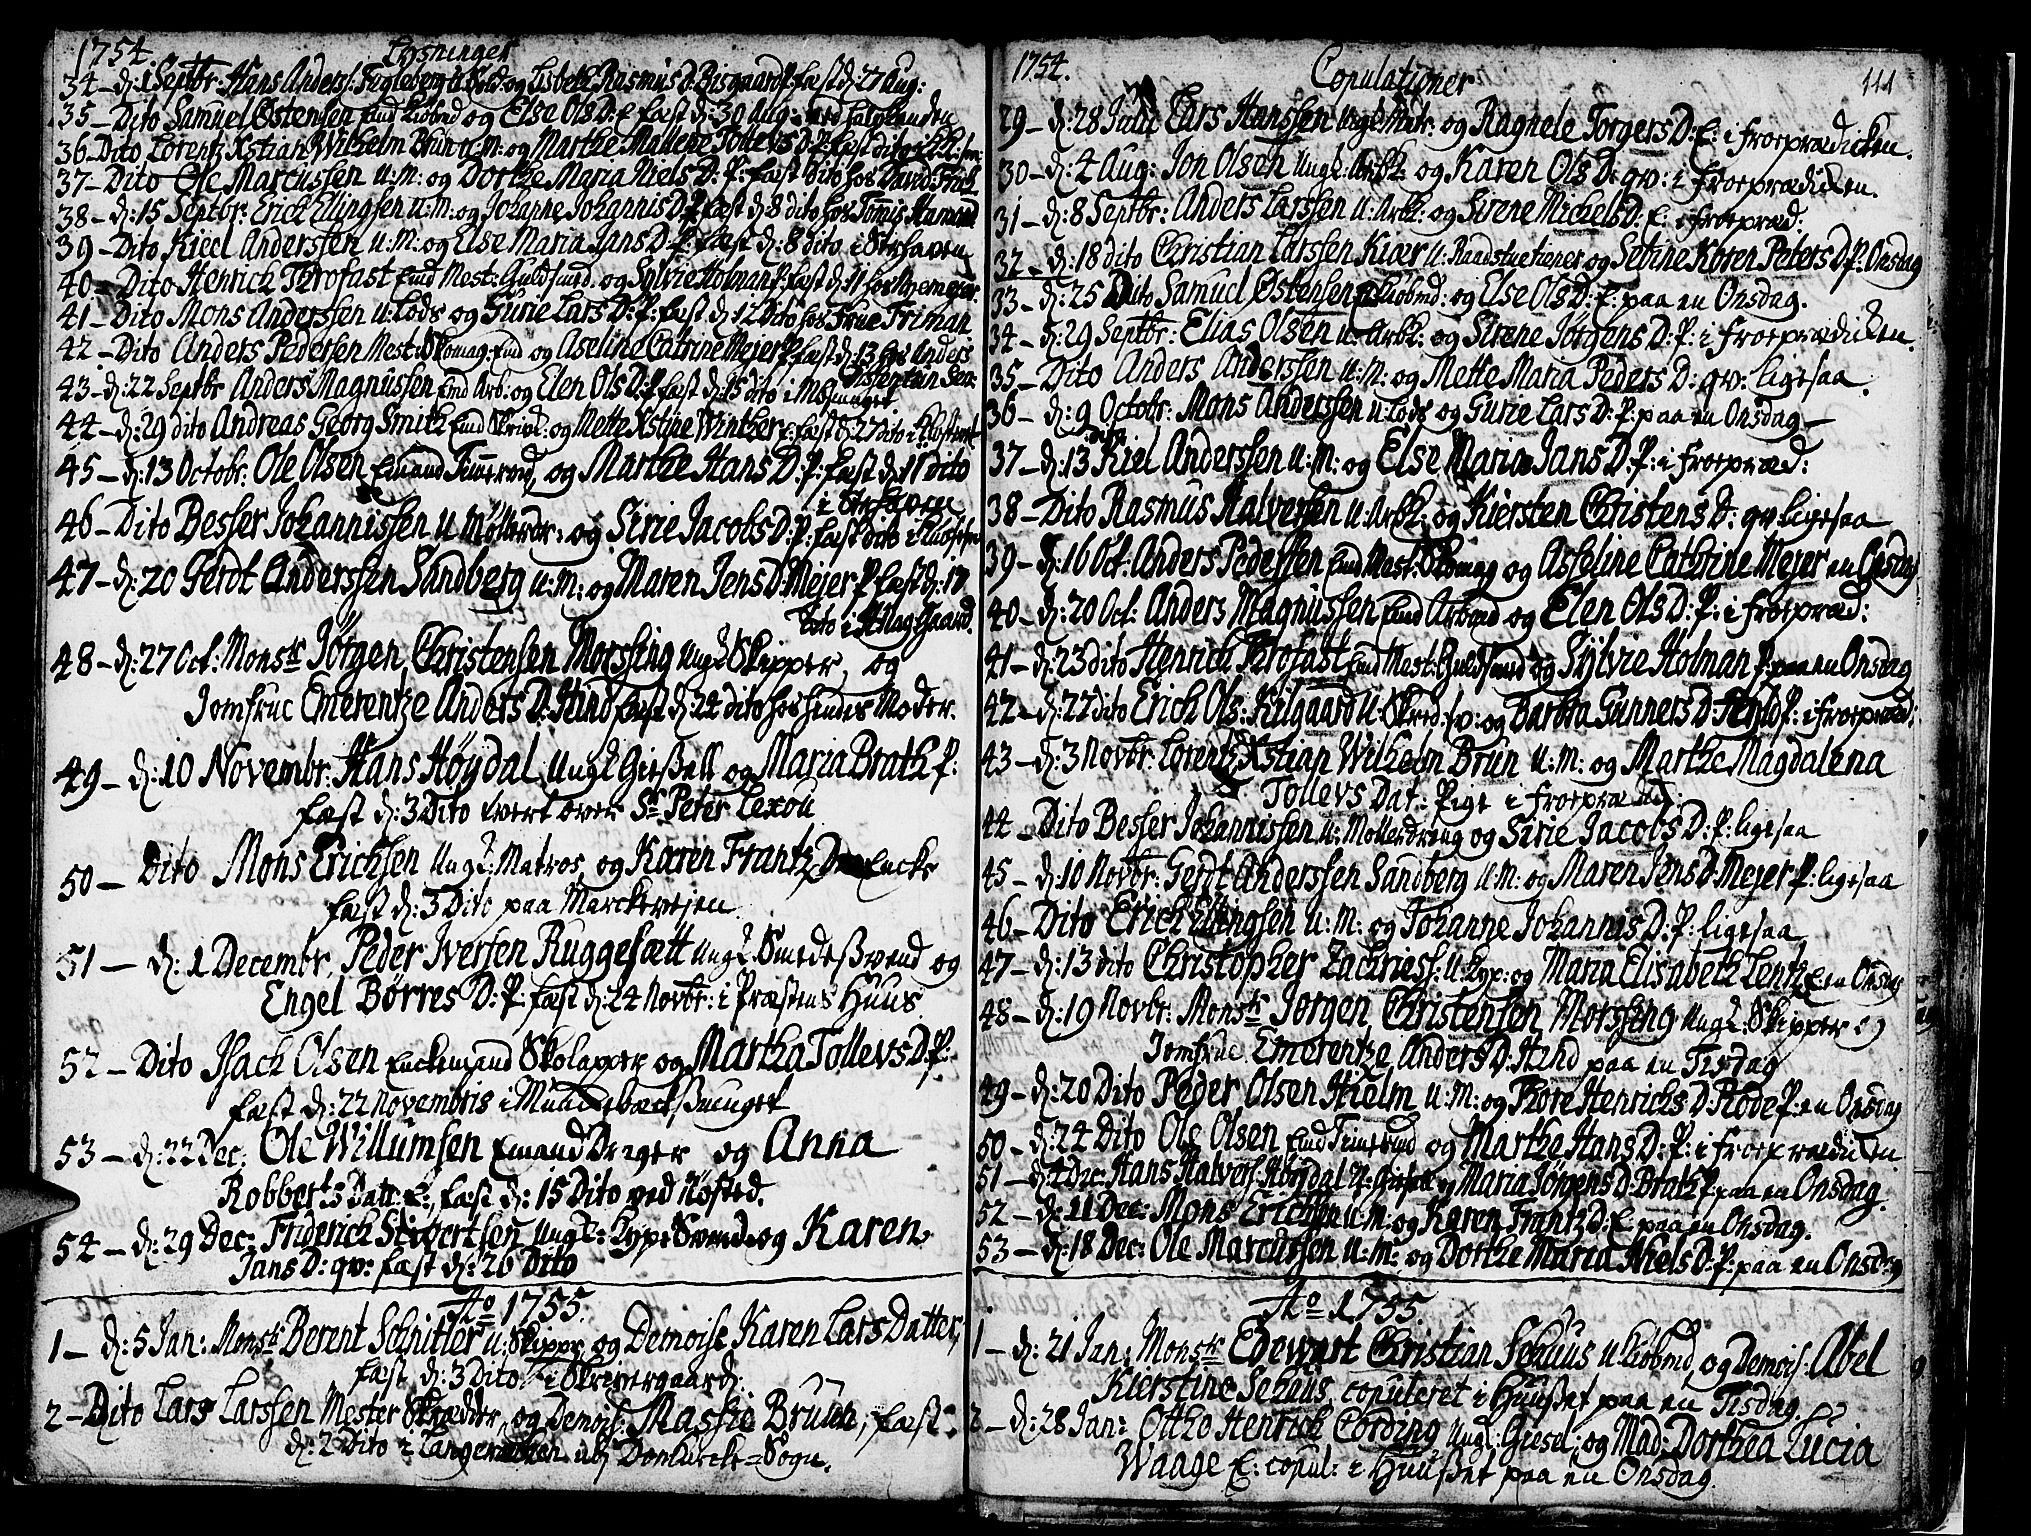 1754. Lysninger
34 – d: 1 Septbr: Hans Anders: og Lisbeth Rasmus D: Bisgaard P. fæst d: 27 Aug:
35 – Dito Samuel Østensen og Else Ols D: E fæst d: 30 Aug:
36 – Dito Lorentz Xstian Wilhelm Brun u: M: og Marthe Tollevs D: P: fæst dito
37 – Dito Ole Marcussen u: M: og Dorthe Maria Niels D: P: fæst Dito hos David
38 – d: 15 Septbr: Erich Ellingsen u: M: og Johanne Johannis D: P fæst d: 8 dito hos
39 – Dito Kiel Anderssen u: M: og Else Maria Jans D: P: fæst d: 8 dito i
40 – Dito Henrich Throfast Emd Mest: Guldsmd. og Sylvie Holman P: fæst d: 11
41 – Dito Mons Anderssen u: Lods og Gurie Lars D: P: fæst d: 12 Dito hos Frue Friman
42 – Dito Anders Pedersen Mest: Skomag: Emd og Aseline Catrine Mejer P. fæst d: 13 hos Anders
43 – d: 22 Septbr Anders Magnussen Emd Arb: og Elen Ols D: P fæst d: 15 dito i
44 – d: 29 dito Andreas Georg Smith Emd og Mette Xstine Winther E: fæst d: 27 dito i
45 – d: 13 Octobr: Ole Olsen Emand og Marthe Hans D: P: fæst d: 11 dito
46 – Dito Besser Johannissen u Møllerdr: og Sirie Jacobs D: P: fæst dito i
47 – d: 20 Gerdt Anderssen Sandberg u: M: og Maren Jens D: Mejer P fæst d: 17
Dito i
48 – d: 27 Oct: Monsr Jørgen Christensen Morssing Ungl Skipper, og
Jomfrue Emerentze Anders D: Hind fæst d: 22 dito hos hendes Moder.
49 – d: 10 Novembr: Hans Høydal Ungl Giesell og Maria Brath P:
fæst d: 3 Dito tvert over Sr Peter Lexou
50 – Dito Mons Erichsen Ungl: Matros, og Karen Frantz D Encke
fæst d: 3 Dito paa Marckevejen
51 – d: 1 Decembr, Peder Iversen Ruggesætt Ungl Smedesvend og
Engel Børres D: P: fæst d: 24 Novbr: i Præstens Huus
52 – Dito Isach Olsen Enckemand Skolapper og Martha Tollevs D: P:
fæst d: 22 Novembris i
53 – d: 22 Dec: Ole Willumsen Emand Drager og Anna
Robberts Datt: E:, fæst d: 15 Dito ved Nøsted.
54 – d: 29 Dec: Friderich Siwertsen Ungl: og Karen
Jans D: qv: fæst d: 26 Dito
Ao 1755.
1 – d: 5 Jan: Monsr Berent Schnitler u: Skippr og Demoise Karen Lars Datter,
fæst d: 3 Dito i Skrivergaard:
2 – Dito Lars Larssen Mester Skrædder, og Demois: Massie Bruun, fæst
d: 2 Dito i Sogn.
1754. Copulationer 111
29 – d: 28 Julii Lars Hanssen Ungl Matr: og Ragnele Torgers D: E: i froeprædicken.
30 – d: 4 Aug: Jon Olsen Ungl: Arbk: og Karen Ols D: qv: i froeprædicken.
31 – d: 8 Septbr: Anders Larssen u: Arbk: og Sirene Michels D: E: i froepræd:
32 – d: 18 dito Christian Larssen Kiær u: Raadstuetiener og Sebine Karen Peters D P: Onsdag
33 – d: 25 Dito Samuel Østensen Kiöbmd: og Else Ols D: E: paa en Onsdag.
34 – d: 29 Septbr: Elias Olsen u: Arbk: og Sirene Jørgens D: P: i froeprædicken.
35 – Dito Anders Anderssen u: M: og Mette Maria Peders D: qv: ligesaa
36 – d: 9 Octobr: Mons Anderssen u: Lods og Gurie Lars D: P: paa en Onsdag –
37 – d: 13 dito Kiel Anderssen u: M: og Else Maria Jans D: P: i froepræd:
38 – Dito Rasmus Halversen u: Arbk: og Kiersten Christens D: qv ligesaa
39 – d: 16 Oct: Anders Pederssen Emd Mest: Skomag og Asseline Cathrine Mejer en Onsdag
40 – d: 20 Oct: Anders Magnussen Emd Arbmd og Elen Ols D: P: i froepræd:
41 – d: 23 dito Henrich Throfast Emd Mest: Guldsmd og Sylvie Holman P: paa en Onsdag
42 – d: 27 dito Erich Ols: Kilgaard u: Skred: sv: og Barbra Gunners D: P: i froepræd:
43 – d: 3 Novbr: Lorentz Xstian Wilhelm Brun u: M: og Marthe Magdalena
Tollevs Dat: Pige i froepræd:
44 – Dito Besser Johannissen u: Møllerdreng og Sirie Jacobs D: P: ligesaa
45 – d: 10 Novbr: Gerdt Anderssen Sandberg u: M: og Maren Jens D: Mejer P: ligesaa
46 – Dito Erich Ellingsen u: M: og Johanne Johannis D: P: ligesaa
47 – d: 13 dito Christopher Zachries: u: Kyp: og Maria Elisabeth Lentz E: en Onsdag
48 – d: 19 Novbr: Monsr Jørgen Christensen Morssing Ungl: Skipper og
Jomfrue Emerentze Anders D: Hind paa en Tisdag
49 – d: 20 Dito Peder Olsen Hielm u: M: og Thore Henrichs D: Rode P: en Onsdag
50 – d: 24 Dito Ole Olsen Emd og Marthe Hans D: P: i froeprædicken
51 – d: 4 Dec: Hans Halvers: Høydal og Maria Jørgens D: Brath P: paa en Onsdag.
52 – d: 11 Dec: Mons Erichsen u: M: og Karen Frantz D: E: paa en Onsdag.
53 – d: 18 Dec: Ole Marcussen u: M: og Dorthe Maria Niels D: P: paa en Onsdag
Ao 1755.
1 – d: 21 Jan: Monsr Edewart Christian Schuus u. Kiöbmd, og Demois: Abel
Kierstine Schuus, copuleret i Huuset paa en Tisdag.
2 – d: 28 Jan: Otho Henrich Cording Ungl: Giesel: og Mad: Dorthea Lucia
Waage E: copul: i Huuset paa en Onsdag.